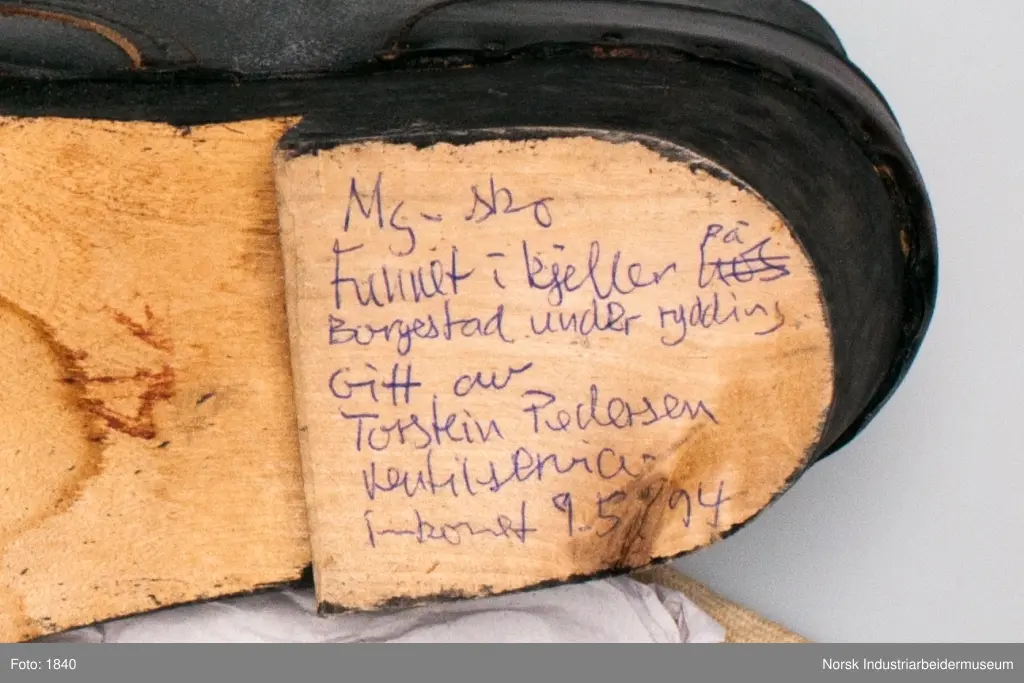 Mg-sko
Funnet i kjeller på
Borgestad under rydding.
Gitt av
Torstein Pedersen
Ventilservice
innkomet 9.5 '94
Foto: 1840
Norsk Industriarbeidermuseum